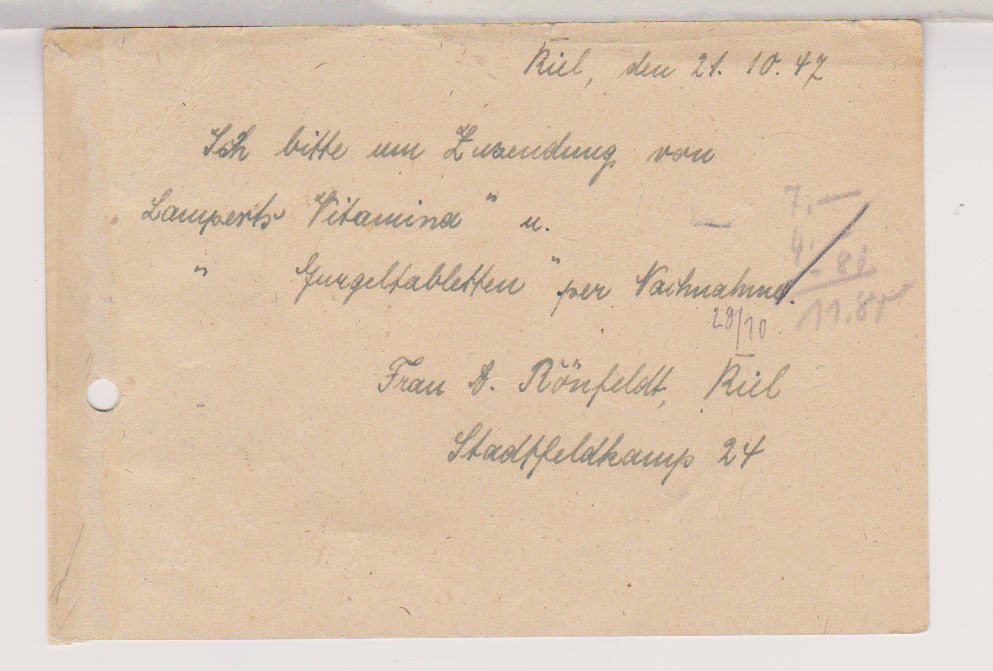 Kiel, den 21. 10. 47
Ich bitte um Zusendung von
„Lamperts Vitamina" u.
" Gurgeltabletten" per Nachnahme.
28/10
Frau A. Rönfeldt, Kiel
Stadtfeldkamp 24
7.—
11.85